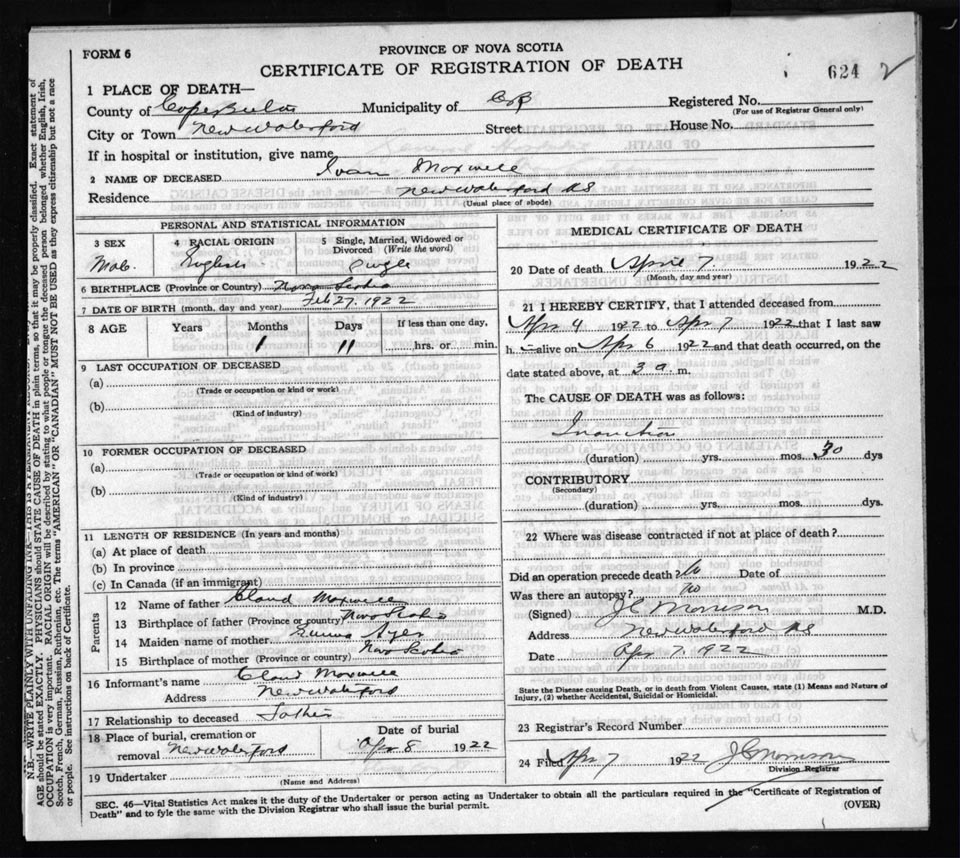 FORM 6
PROVINCE OF NOVA SCOTIA
CERTIFICATE OF REGISTRATION OF DEATH
624 2
1 PLACE OF DEATH—
County of Cape Breton Municipality of C B Registered No.
(For use of Registrar General only)
City or Town New Waterford Street House No.
If in hospital or institution, give name
2 NAME OF DECEASED Ivan Maxwell
Residence New Waterford N S
(Usual place of abode)
PERSONAL AND STATISTICAL INFORMATION
3 SEX 4 RACIAL ORIGIN 5 Single, Married, Widowed or Divorced (Write the word)
Male English Single
6 BIRTHPLACE (Province or Country) Nova Scotia
7 DATE OF BIRTH (month, day and year) Feb 27, 1922
8 AGE Years Months Days If less than one day,
1 11 hrs. or min.
9 LAST OCCUPATION OF DECEASED
(a)
(Trade or occupation or kind or work)
(b)
(Kind of industry)
10 FORMER OCCUPATION OF DECEASED
(a)
(Trade or occupation or kind or work)
(b)
(Kind of industry)
11 LENGTH OF RESIDENCE (In years and months)
(a) At place of death
(b) In province
(c) In Canada (if an immigrant)
Parents
12 Name of father Claud Maxwell
13 Birthplace of father (Province or country) Nova Scotia
14 Maiden name of mother Ayer
15 Birthplace of mother (Province or country) Nova Scotia
16 Informant's name Claud Maxwell
Address New Waterford
17 Relationship to deceased Father
18 Place of burial, cremation or removal New Waterford Date of burial Apr 8 1922
19 Undertaker
(Name and Address)
MEDICAL CERTIFICATE OF DEATH
20 Date of death April 7 1922
(Month, day and year)
21 I HEREBY CERTIFY, that I attended deceased from
Apr 4 1922 to Apr 7 1922 that I last saw
h alive on Apr 6 1922 and that death occurred, on the
date stated above, at 3 a m.
The CAUSE OF DEATH was as follows:
Inanition
(duration) yrs. mos. 30 dys
CONTRIBUTORY
(Secondary)
(duration) yrs. mos. dys.
22 Where was disease contracted if not at place of death?
Did an operation precede death? No Date of
Was there an autopsy? no
(Signed) J C Morrison M.D.
Address New Waterford N S
Date Apr 7, 1922
State the Disease causing Death, or in death from Violent Causes, state (1) Means and Nature of
Injury, (2) whether Accidental, Suicidal or Homicidal.
23 Registrar's Record Number
24 Filed Apr 7 1922 J C Morrison
Division Registrar
SEC. 46—Vital Statistics Act makes it the duty of the Undertaker or person acting as Undertaker to obtain all the particulars required in the "Certificate of Registration of
Death" and to fyle the same with the Division Registrar who shall issue the burial permit.
(OVER)
N.B.—WRITE PLAINLY WITH UNFADING INK—THIS IS A PERMANENT RECORD.
AGE should be stated EXACTLY. PHYSICIANS should STATE CAUSE OF DEATH in plain terms, so that it may be properly classified. Exact statement of
OCCUPATION is very important. RACIAL ORIGIN will be described by stating to what people or tongue the deceased person belonged whether English, Irish,
Scotch, French, German, Russian, Ruthenian, etc. The terms "AMERICAN" OR "CANADIAN" MUST NOT BE USED as they express citizenship but not a race
or people. See instructions on back of Certificate.